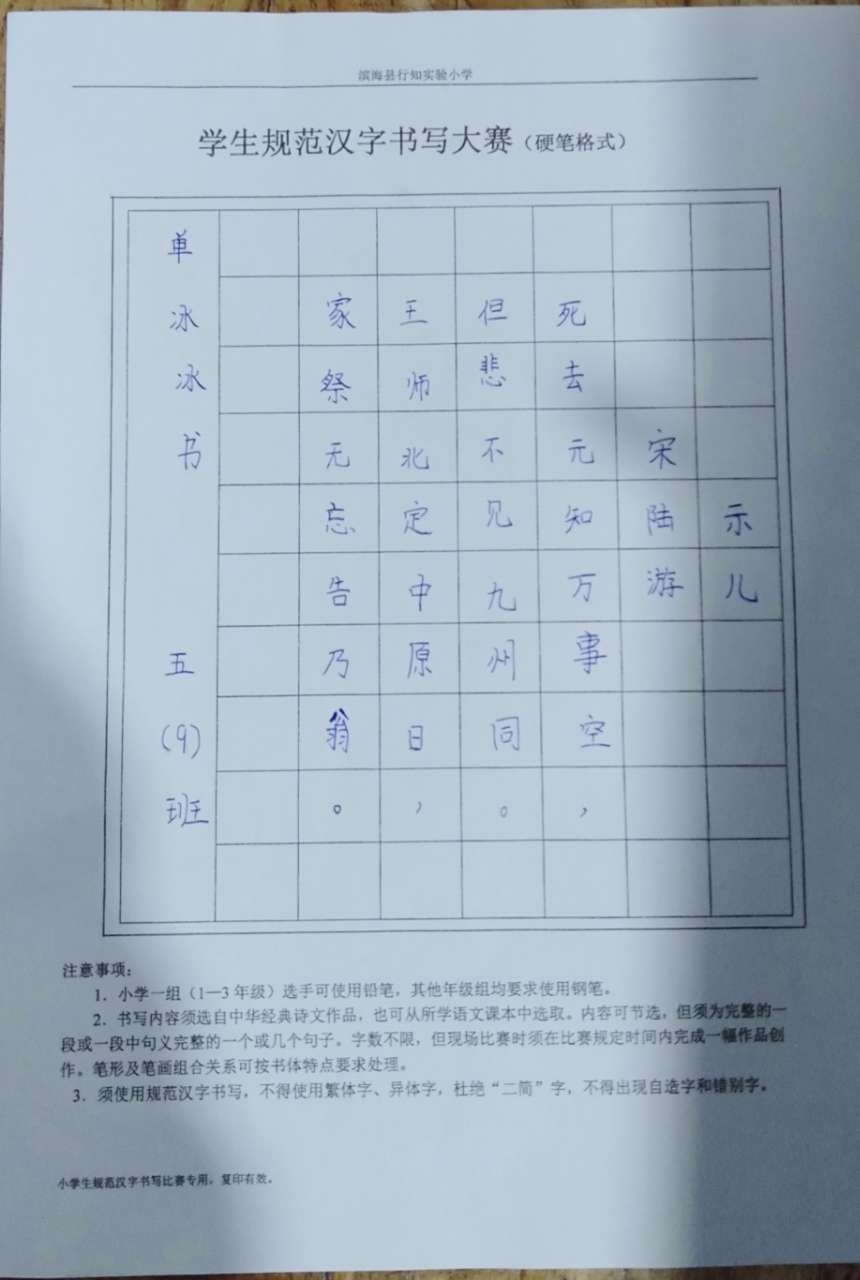 滨海县行知实验小学
学生规范汉字书写大赛（硬笔格式）
示儿
宋陆游
死去元知万事空，
但悲不见九州同。
王师北定中原日，
家祭无忘告乃翁。
单冰冰书 五(9)班
注意事项：
1．小学一组（1—3年级）选手可使用铅笔，其他年级组均要求使用钢笔。
2．书写内容须选自中华经典诗文作品，也可从所学语文课本中选取。内容可节选，但须为完整的一
段或一段中句义完整的一个或几个句子。字数不限，但现场比赛时须在比赛规定时间内完成一幅作品创
作。笔形及笔画组合关系可按书体特点要求处理。
3．须使用规范汉字书写，不得使用繁体字、异体字，杜绝“二简”字，不得出现自造字和错别字。
小学生规范汉字书写比赛专用。复印有效。